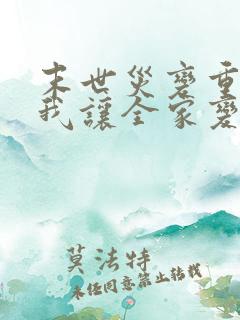 末世災變重
我讓全家變
莫法特
未經同意禁止轉載